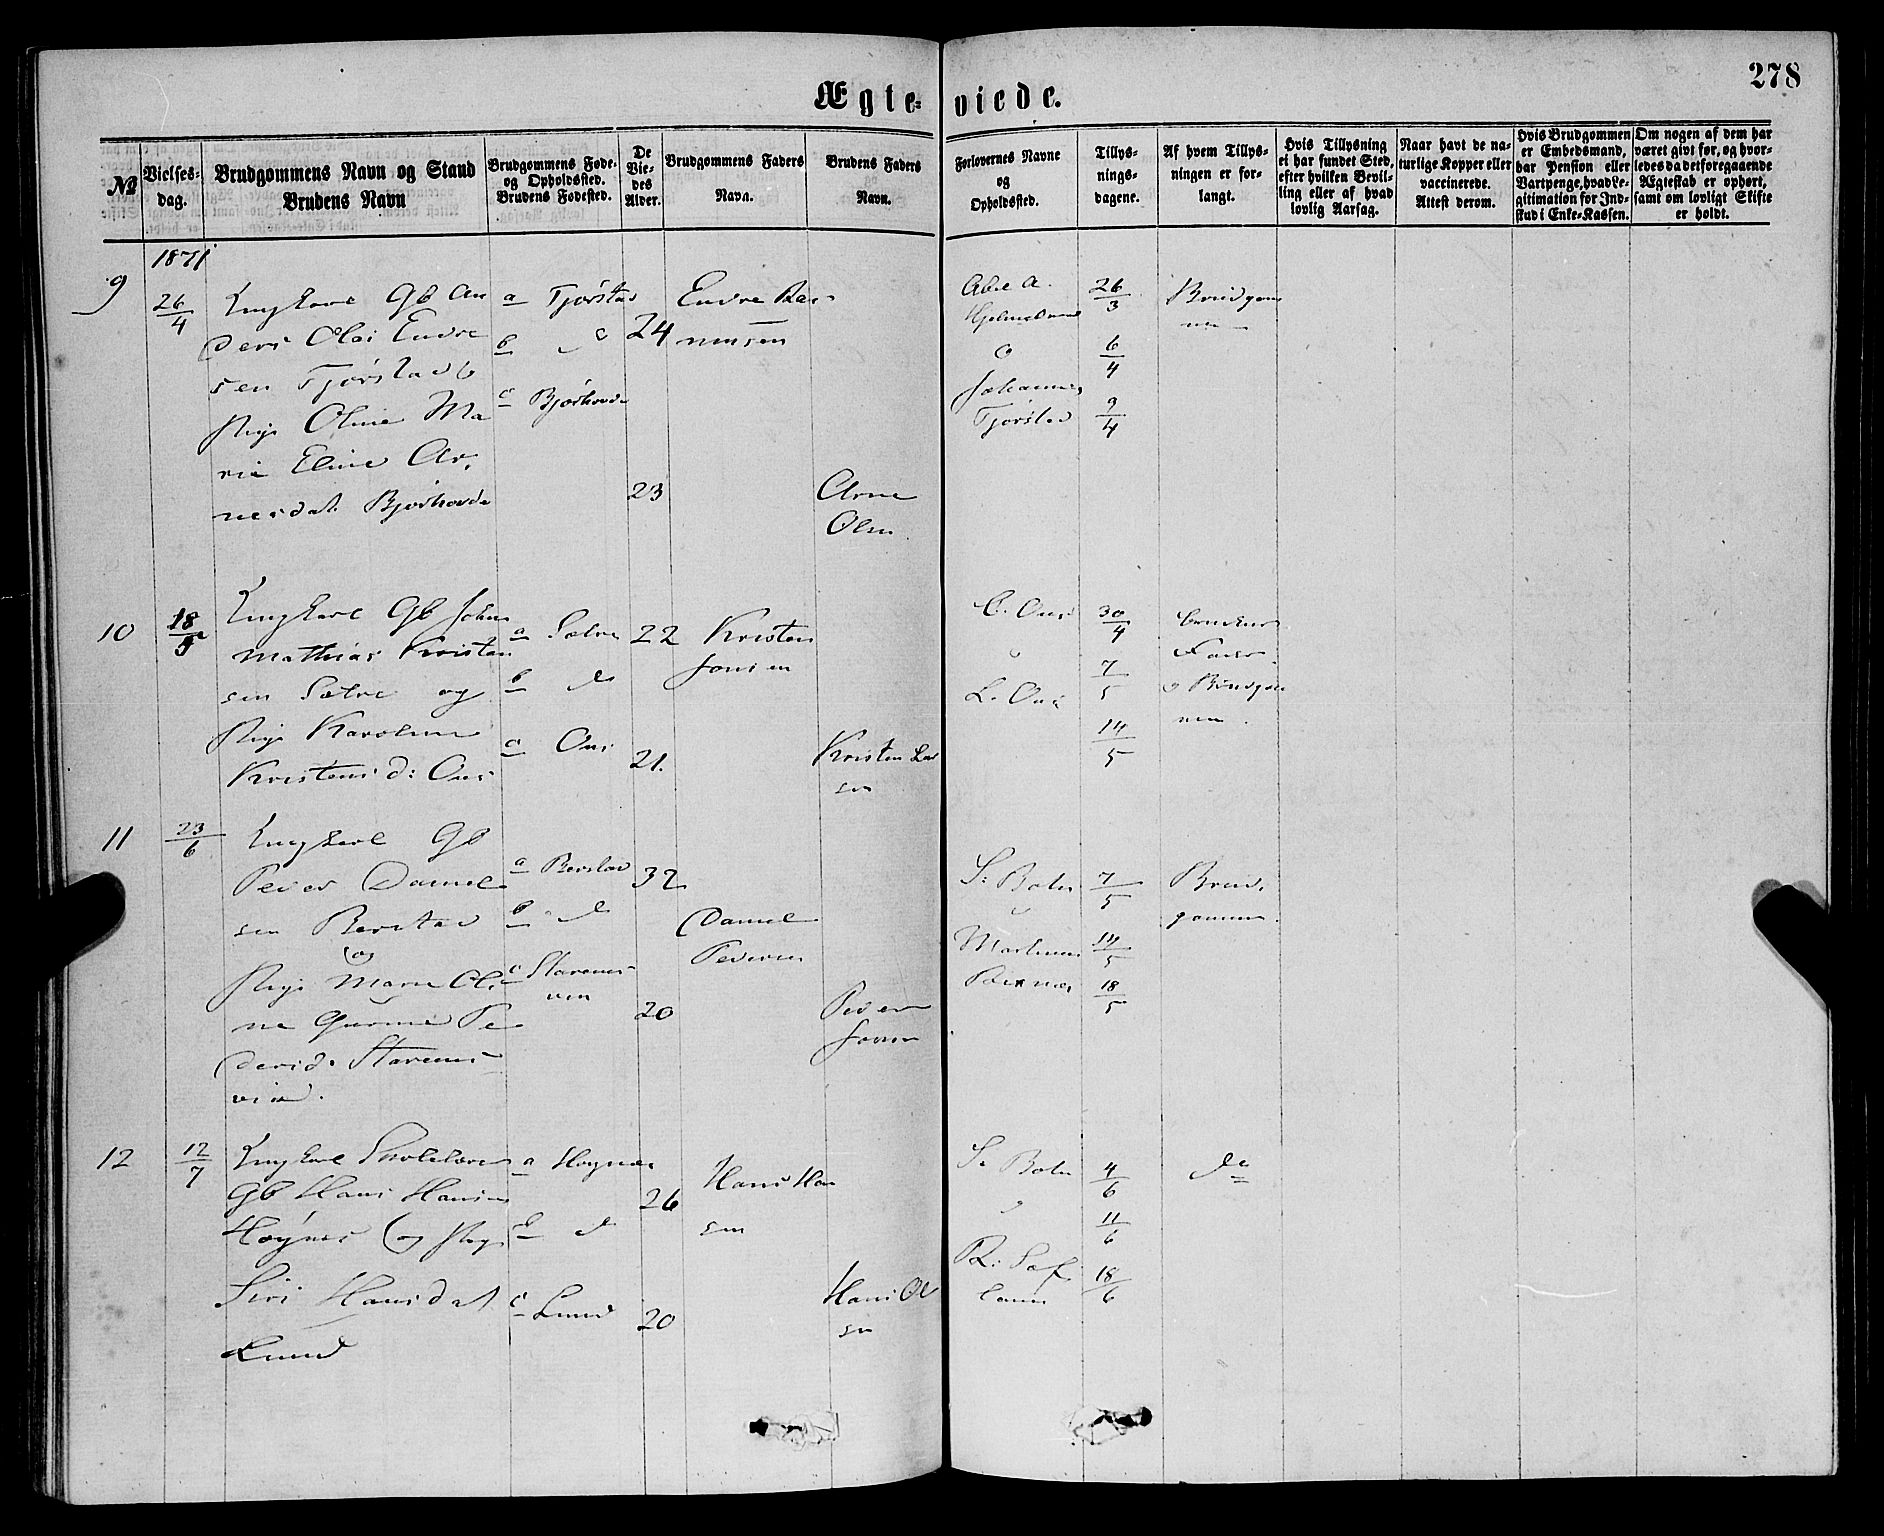 278
Ægte-viede.
№
Vielses-
dag.
Brudgommens Navn og Stand
Brudens Navn
Brudgommens Føde-
og Opholdssted.
Brudens Fødested.
De
Vie-
des
Alder.
Brudgommens Faders
Navn.
Brudens Faders
Navn.
Forlovernes Navne
og
Opholdssted.
Tillys-
nings-
dagene.
Af hvem Tillys-
ningen er for-
langt.
Hvis Tillysning
ei har fundet Sted,
efter hvilken Bevil-
ling eller af hvad
lovlig Aarsag.
Naar havt de na-
turlige Kopper eller
vaccinerede.
Attest derom.
Hvis Brudgommen
er Embedsmand,
har Pension eller
Vartpenge, hvad Le-
gitimation for Ind-
skud i Enke-Kassen.
Om nogen af dem har
været givt før, og hvor-
ledes da det foregaaende
Ægteskab er ophørt,
samt om lovligt Skifte
er holdt.
1871
9
26/4
Ungkarl Gb An
ders Olai Endre
sen Tjørstad
Pige Oline Ma
rie Eline Ar-
nesdat. Bjørhovde
a Tjørstad
b d
c Bjørhovde
24
23
Endre Ras
mussen
Arne
Olsen
Abel A.
Johannes
Tjørstad
26/3
6/4
9/4
Brudgom
men
10
18/5
Ungkarl Gb Johan
Mathias Kristen
sen Sætre og
Pige Karoline
Kristensd: Ous
a Sætre
b d
c Ous
22
21.
Kristen
Jonsen
Kristen Lar
sen
C. Ous
o
L. Ous
30/4
7/5
14/5
Brudens
Fader
o Brudgom
men.
11
23/6
Ungkarl Gb
Peder Daniel
sen Berstad
og
Pige Marie Oli
ne Gurine Pe
dersd. Stavenes
vik.
a Berstad
b d
c Stavenes
vik
32
20
Daniel
Pedersen
Peder
Jonsen
S: Botn
o
Martinus
7/5
14/5
18/5
Brud-
gommen.
12
12/7
Ungkarl Skolelærer
Gb Hans Hansen
Høynes og Pige
Siri Hansdat
Lund
a Høynes
b d
c Lund
26
20
Hans Han
sen
Hans Ol
sen
S. Botn
o
4/6
11/6
18/6
do